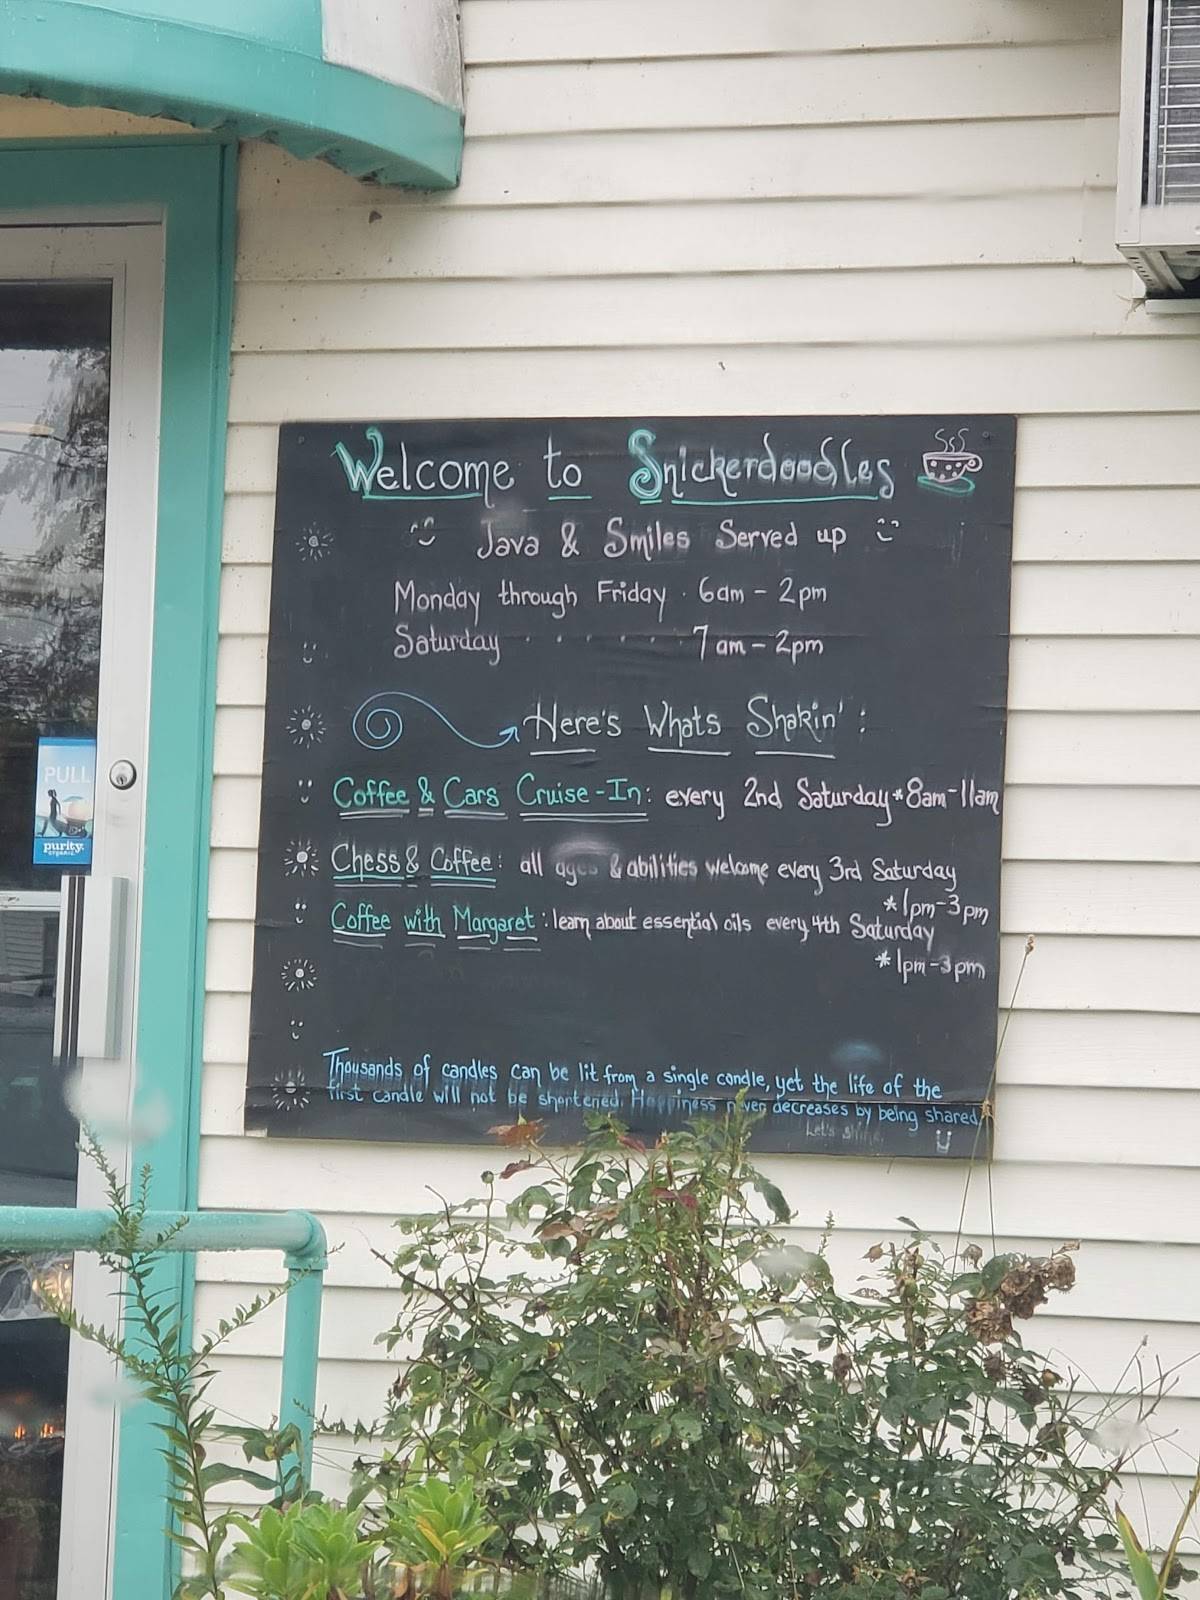 Welcome to Snickerdoodles
Java & Smiles Served up
Monday through Friday · 6am - 2pm
Saturday · · · · · · 7am - 2pm
Here's Whats Shakin' :
Coffee & Cars Cruise-In: every 2nd Saturday * 8am-11am
Chess & Coffee: all ages & abilities welcome every 3rd Saturday
* 1pm-3pm
Coffee with Margaret: learn about essential oils every 4th Saturday
* 1pm-3pm
Thousands of candles can be lit from a single candle, yet the life of the
first candle will not be shortened. Happiness never decreases by being shared.
Let's shine
PULL
purity.
ORGANIC